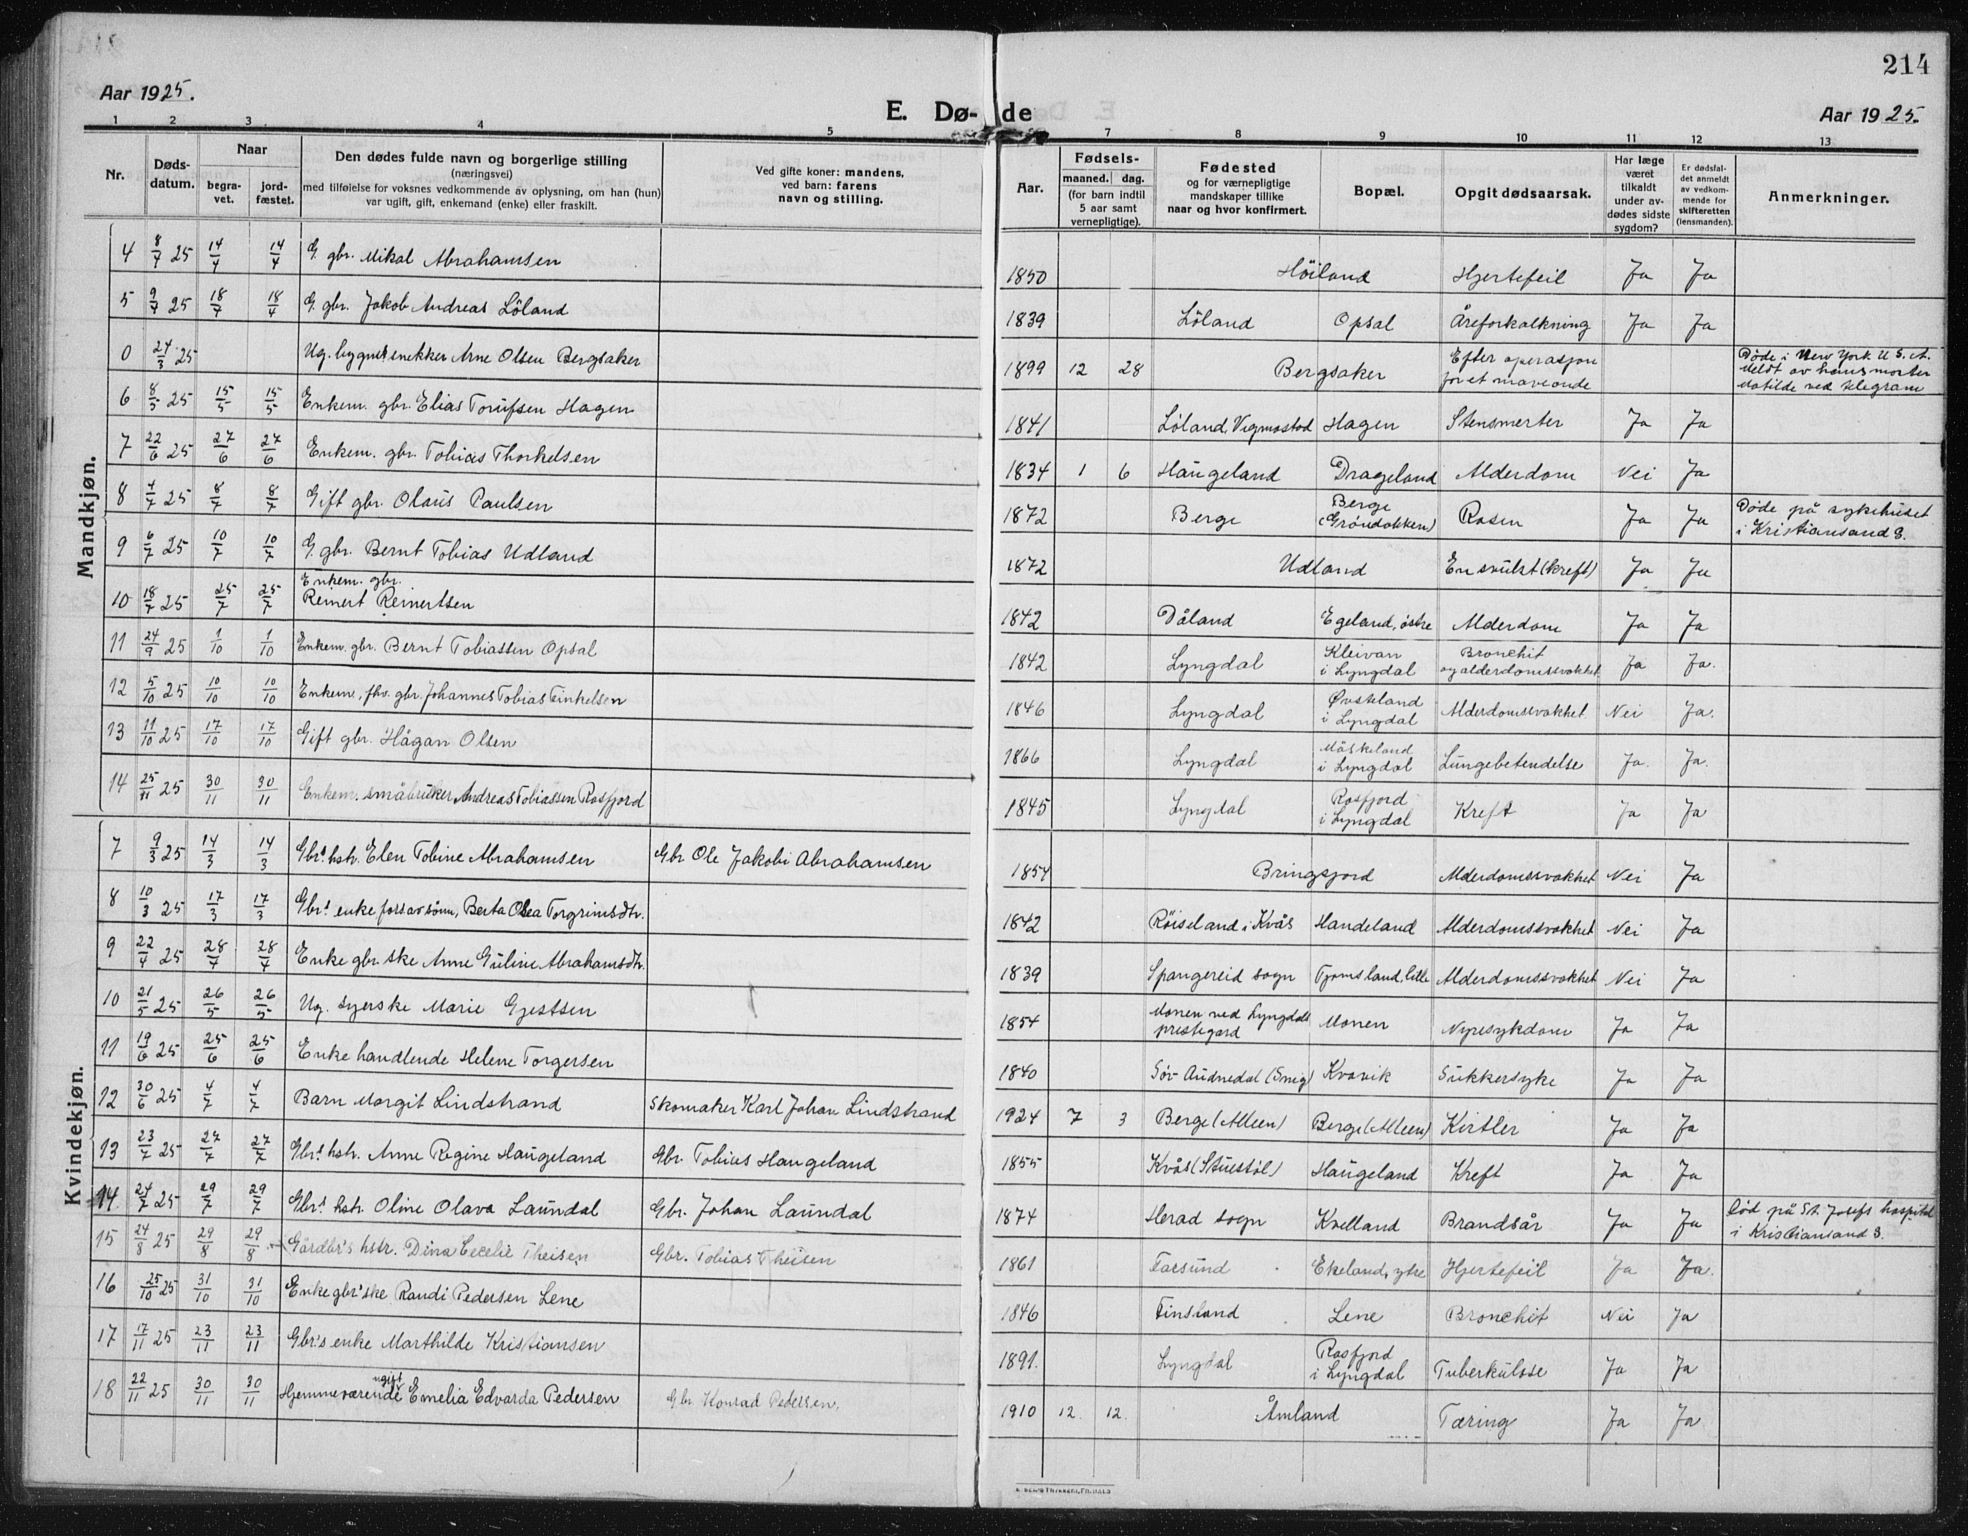 214
Aar 1925.
E. Dø- de
Aar 1925.
1 2 3 4 5 7 8 9 10 11 12 13
Nr.
Døds-
datum.
Naar
begra-
vet.
jord-
fæstet.
Den dødes fulde navn og borgerlige stilling
(næringsvei)
med tilføielse for voksnes vedkommende av oplysning, om han (hun)
var ugift, gift, enkemand (enke) eller fraskilt.
Ved gifte koner: mandens,
ved barn: farens
navn og stilling.
Aar.
Fødsels-
maaned. dag.
(for barn indtil
5 aar samt
vernepligtige).
Fødested
og for værnepligtige
mandskaper tillike
naar og hvor konfirmert.
Bopæl.
Opgit dødsaarsak.
Har læge
været
tilkaldt
under av-
dødes sidste
sygdom?
Er dødsfal-
det anmeldt
av vedkom-
mende for
skifteretten
(lensmanden).
Anmerkninger.
Mandkjøn.
4 8/4 25 14/4 14/4 G. gbr. Mikal Abrahamsen 1850 Höiland Hjertefeil Ja Ja
5 9/4 25 18/4 18/4 G. gbr. Jakob Andreas Löland 1839 Löland Opsal Åreforkalkning Ja Ja
0 24/3 25 Ug. bygnetsnekker Arne Olsen Bergsaker 1899 12 28 Bergsaker Efter operasjon
for et maveonde
Døde i New York U.S.A.
Meldt av hans morter
Matilde ved telegram
6 8/5 25 15/5 15/5 Enkem. gbr. Elias Torüfsen Hagen 1841 Løland, Vigmostad Hagen Stensmerter Ja Ja
7 22/6 25 27/6 27/6 Enkem. gbr. Tobias Thorkelsen 1834 1 6 Haugeland Drageland Alderdom Nei Ja
8 4/7 25 8/7 8/7 Gift gbr. Olaus Paulsen 1872 Berge Berge
(Grøndokken) Rosen Ja Ja Døde på sykehuset
i Kristiansand S.
9 6/7 25 10/7 10/7 G. gbr. Bernt Tobias Udland 1872 Udland En svulst (kreft) Ja Ja
10 18/7 25 25/7 25/7 Enkem. gbr.
Reinert Reinertsen 1842 Dåland Egeland, östre Alderdom Ja Ja
11 24/9 25 1/10 1/10 Enkem. gbr. Bernt Tobiassen Opsal 1842 Lyngdal Kleivan
i Lyngdal Bronchit
og alderdomssvakhet Ja Ja.
12 5/10 25 10/10 10/10 Enkem. fhv. gbr. Johannes Tobias Finkelsen 1846 Lyngdal Øvsteland
i Lyngdal Alderdomssvakhet Nei Ja.
13 11/10 25 17/10 17/10 Gift gbr. Hågan Olsen 1866 Lyngdal Måskeland
i Lyngdal Lungebetendelse Ja. Ja.
14 25/11 25 30/11 30/11 Enkem. småbruker Andreas Tobiassen Rosfjord 1845 Lyngdal Rosfjord
i Lyngdal Kreft Ja Ja
Kvindekjøn.
7 9/3 25 14/3 14/3 Gbr.s hstr. Elen Tobine Abrahamsen Gbr Ole Jakobi Abrahamsen 1854 Bringsjord Alderdomssvakhet Nei Ja
8 10/3 25 17/3 17/3 Gbr.s enke forsavsönn, Berta Olsea Torgrimsdtr. 1842 Röiseland i Kvås Handeland Alderdomssvakhet Nei Ja
9 22/4 25 28/4 28/4 Enke gbr.ske Anne Guline Abrahamsdtr. 1839 Spangereid sogn Tjomsland, lille Alderdomssvakhet Nei Ja
10 21/5 25 26/5 26/5 Ug. syerske Marie Gjestsen 1854 Monen ved Lyngdals
prestegard Monen Nyresykdom Ja Ja
11 19/6 25 25/6 25/6 Enke handlende Helene Torgersen 1840 Sör-Audnedal (Snig) Kvavik Sukkersyke Ja Ja
12 30/6 25 4/7 4/7 Barn Margit Lindstrand Skomaker Karl Johan Lindstrand 1924 7 3 Berge (Alleen) Berge (Alleen) Kirtler Ja Ja
13 23/7 25 27/7 27/7 Gbr.s hstr. Anne Regine Haugeland Gbr. Tobias Haugeland 1855 Kvås (Stuestøl) Haugeland Kreft Ja Ja
14. 24/7 25 29/7 29/7 Gbr.s hstr. Oline Olava Laundal Gbr. Johan Laundal 1874 Herad sogn Kvelland Brandsår Ja Ja Død på St. Josefs hospital
i Kristiansand S.
15 24/8 25 29/8 29/8 Gårdbr's hstr. Dina Cecelie Theisen Gbr. Tobias Theisen 1861 Farsund Ekeland, ytre Hjertefeil Ja Ja.
16 25/10 25 31/10 31/10 Enke gbr'ske Randi Pedersen Lene 1846 Finsland Lene Bronchit Nei Ja
17 17/11 25 23/11 23/11 Gbr's enke Marthilde Kristiansen 1891. Lyngdal Rosfjord
i Lyngdal Tuberkulose Ja Ja
18 22/11 25 30/11 30/11 Hjemmeværende ugift Emelia Edvarda Pedersen Gbr. Konrad Pedersen. 1910 12. 12. Åmland Tæring Ja Ja